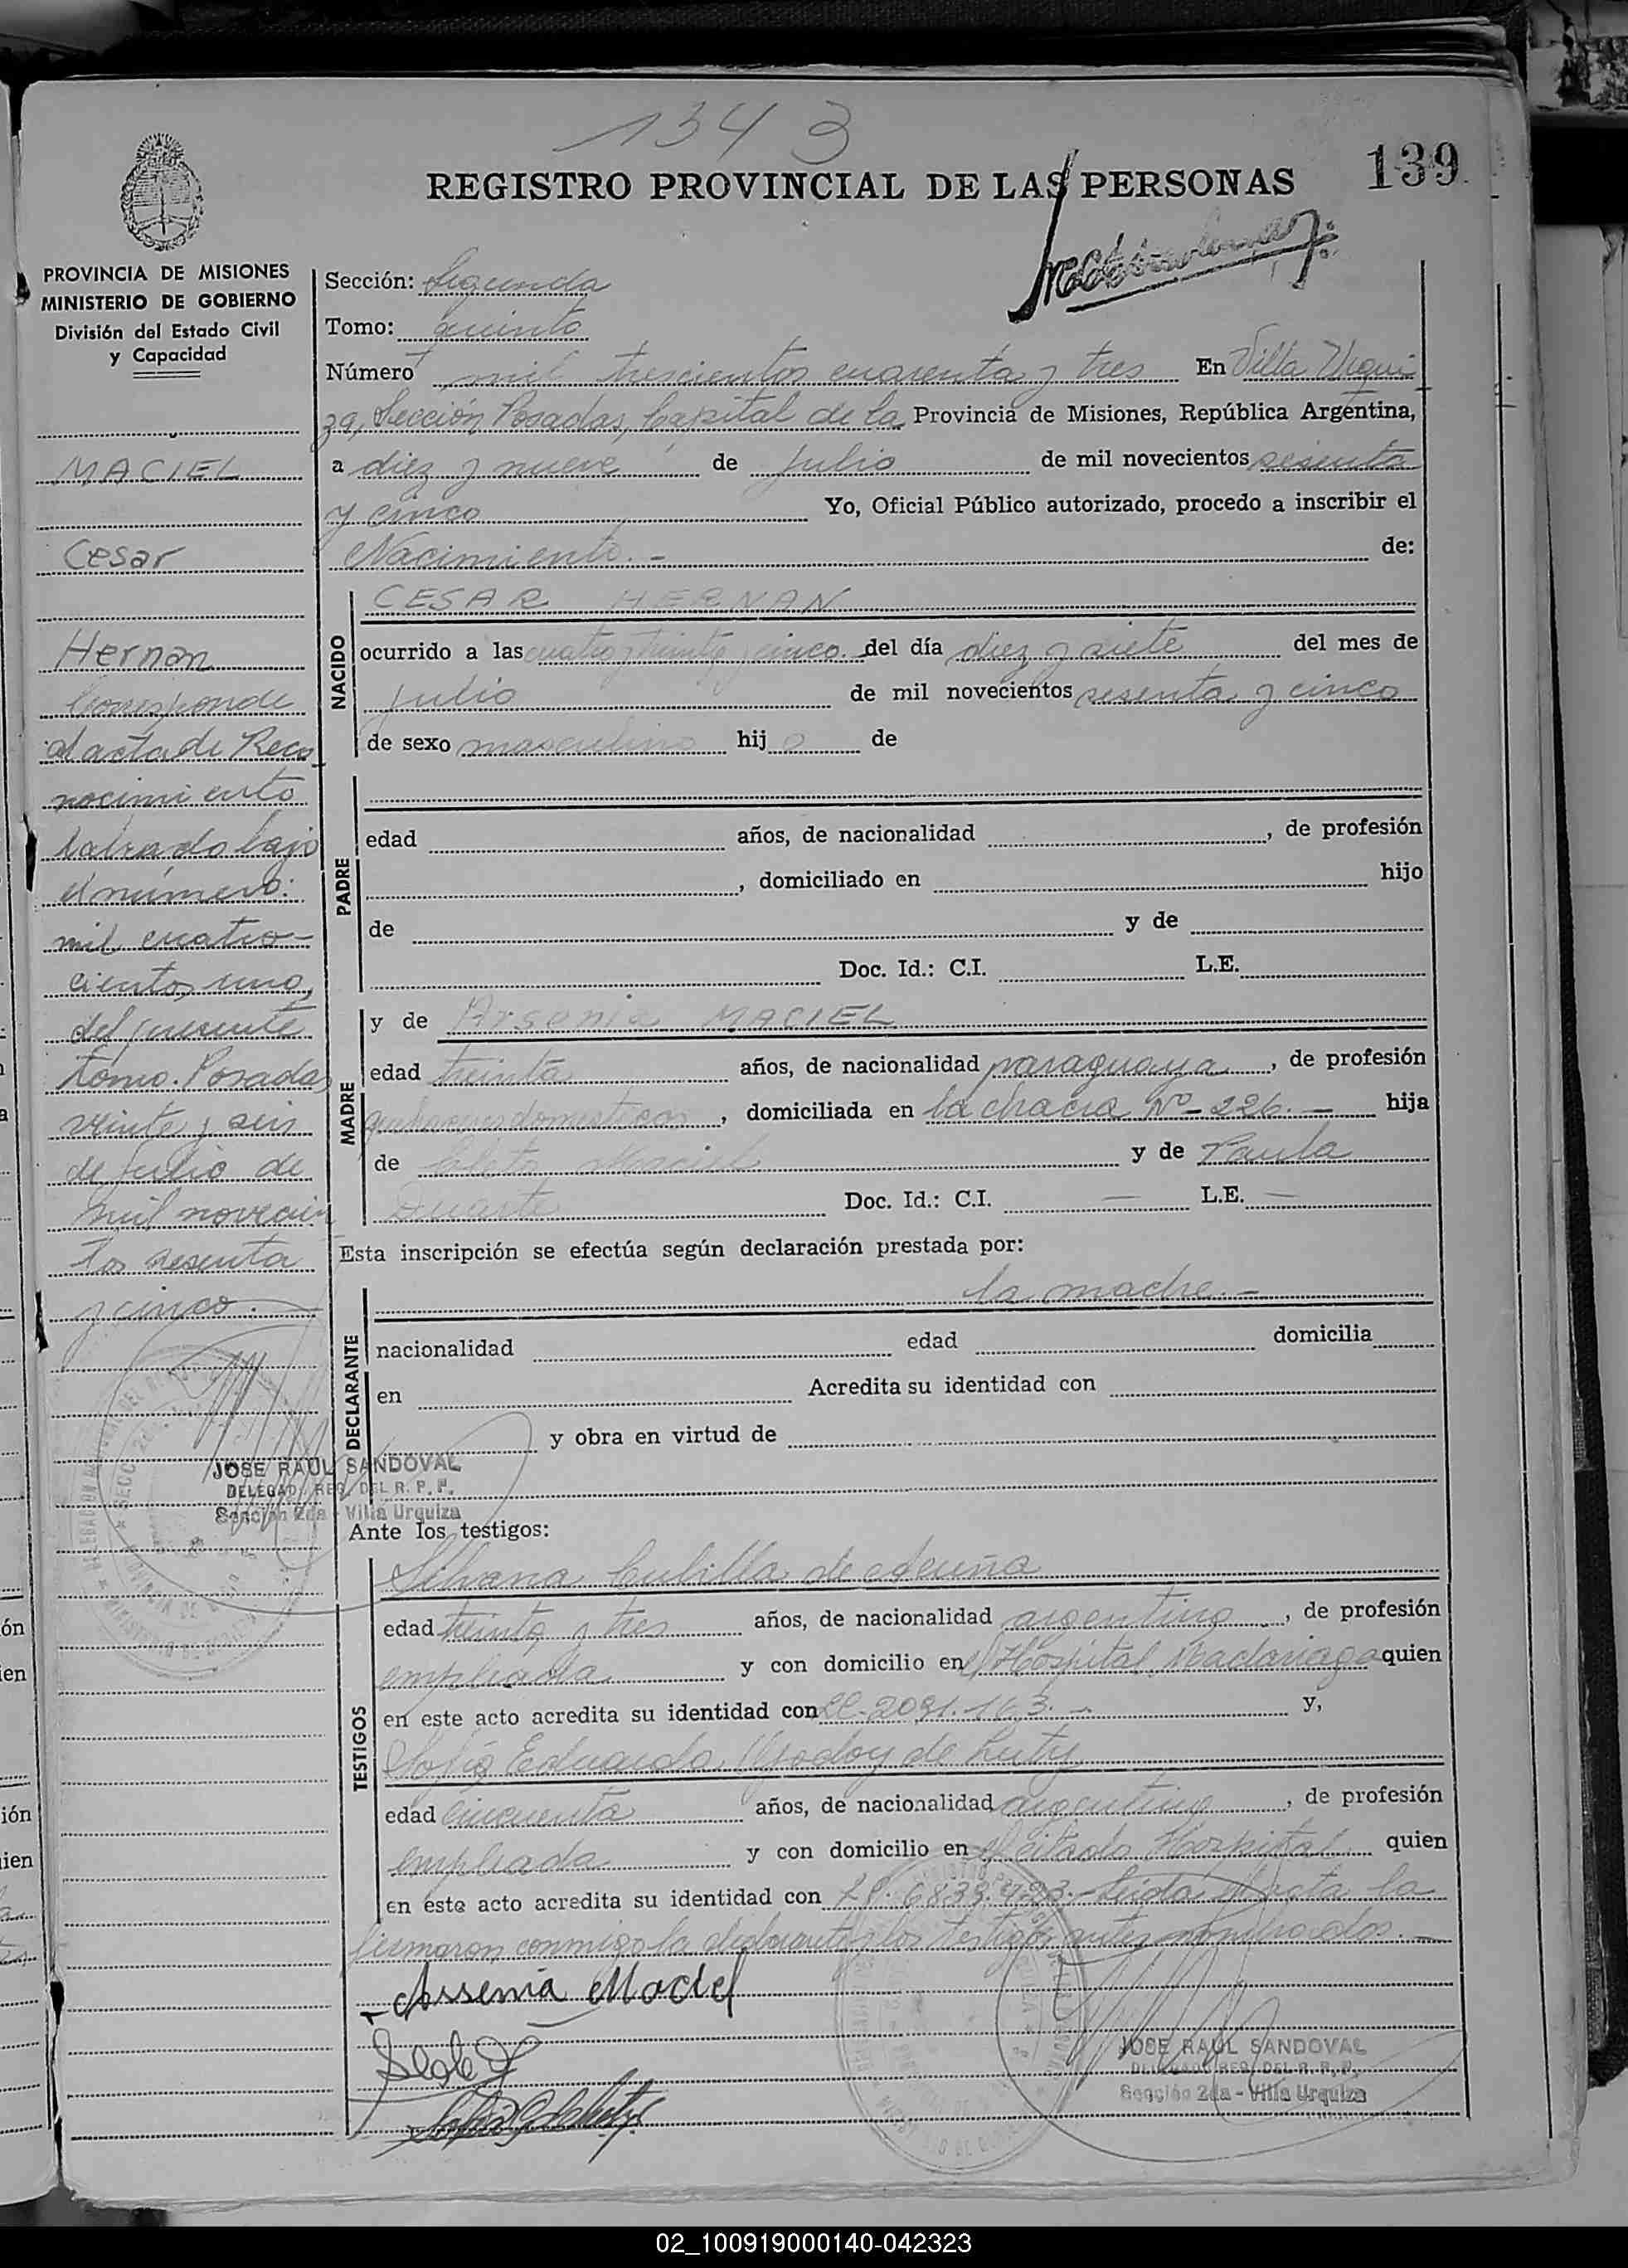 1343
REGISTRO PROVINCIAL DE LAS PERSONAS
139
PROVINCIA DE MISIONES
MINISTERIO DE GOBIERNO
División del Estado Civil
y Capacidad
MACIEL
Cesar
Hernan
Corresponde
al acta de Reco
nocimiento
labrado bajo
el número:
mil cuatro-
cientos uno,
del presente
tomo. Posadas
veinte y seis
de Julio de
mil novecien
tos sesenta
y cinco.
JOSE RAUL SANDOVAL
DELEGADO REG. DEL R. P. P.
Sección 2da - Villa Urquiza
Sección: Segunda
Tomo: quinto
Número mil trescientos cuarenta y tres En Villa Urqui
za, Sección Posadas, Capital de la Provincia de Misiones, República Argentina,
a diez y nueve de Julio de mil novecientos sesenta
y cinco Yo, Oficial Público autorizado, procedo a inscribir el
Nacimiento.- de:
NACIDO
CESAR HERNAN
ocurrido a las cuatro y treinta y cinco. del día diez y siete del mes de
Julio de mil novecientos sesenta y cinco
de sexo masculino hijo de
PADRE
edad años, de nacionalidad , de profesión
, domiciliado en hijo
de y de
Doc. Id.: C.I. L.E.
MADRE
y de Arsenia MACIEL
edad treinta años, de nacionalidad paraguaya, de profesión
quehaceres domesticos, domiciliada en la chacra Nº- 226.- hija
de Cleto Maciel y de Paula
Duarte Doc. Id.: C.I. — L.E. —
Esta inscripción se efectúa según declaración prestada por:
DECLARANTE
la madre.-
nacionalidad edad domicilia
en Acredita su identidad con
y obra en virtud de
Ante los testigos:
TESTIGOS
Silvana Cubilla de Acuña
edad treinta y tres años, de nacionalidad argentina, de profesión
empleada y con domicilio en el Hospital Madariaga quien
en este acto acredita su identidad con 2091.163.- y,
Sofia Eduarda Godoy de Luty
edad cincuenta años, de nacionalidad argentina, de profesión
empleada y con domicilio en el citado Hospital quien
en este acto acredita su identidad con Leida el acta la
firmaron conmigo la declarante y los testigos antes nombrados.-
Arsenia Maciel
JOSE RAUL SANDOVAL
DELEGADO REG. DEL R. P. P.
Sección 2da - Villa Urquiza
02_100919000140-042323